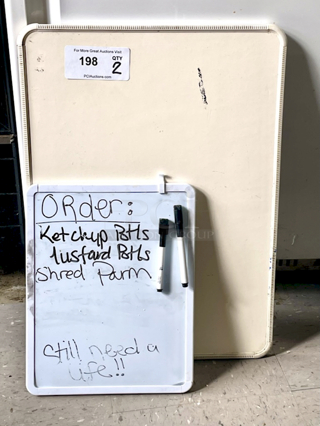 For More Great Auctions Visit
198
QTY
2
PCIAuctions.com
ORder:
Ketchup Btls
Mustard Btls
Shred Parm
Still need a
wife!!